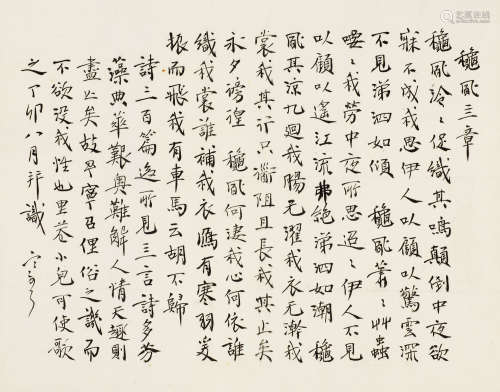 穐風三章
穐風泠々促織其鳴顛倒中夜欲
寐不成我思伊人以顧以驚雲深
不見涕泗如傾 穐風蕭々艸蟲
嘤々我勞中夜所思迢々伊人不見
以顧以遙江流弗絕涕泗如潮 穐
風其涼九迴我腸无濯我衣无澣我
裳我其行只阻且長我其止矣
永夕徬徨 穐風何淒我心何依誰
織我裳誰補我衣鴈有寒羽爰
振而飛我有車馬云胡不歸
詩三百篇迄所見三言詩多芬
藻典華艱奧難解人情天趣則
盡止矣故寧召俚俗之譏而
不欲沒我性也里巷小兒可使歌
之丁卯八月拜識